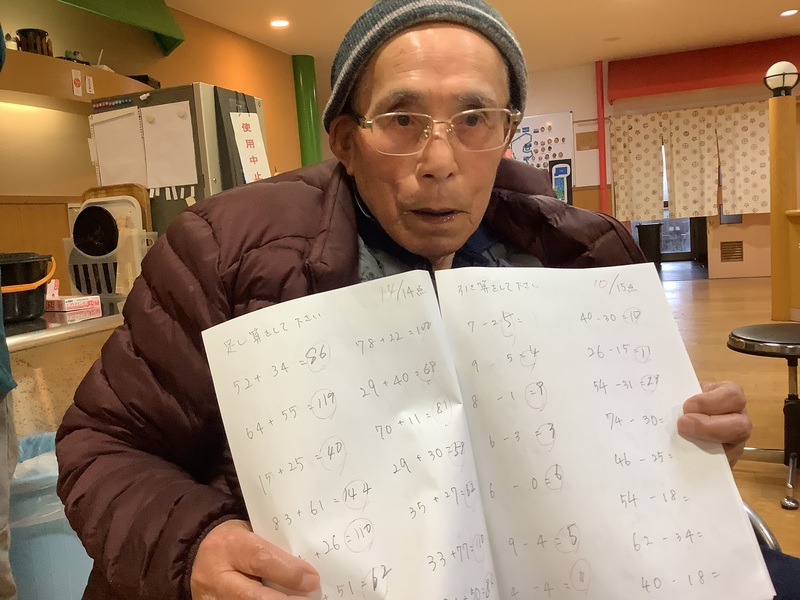 使用中止
足し算をして下さい 14/14点
52 + 34 = 86
64 + 55 = 119
15 + 25 = 40
83 + 61 = 144
+ 26 = 110
+ 51 = 62
78 + 22 = 100
29 + 40 = 69
70 + 11 = 81
29 + 30 = 59
35 + 27 = 62
33 + 77 = 110
引き算をして下さい 10/15点
7 - 2 5 =
9 - 5 = 4
8 - 1 =
6 - 3 = 3
6 - 0 = 6
9 - 4 = 5
- 4 =
40 - 30 = 10
26 - 15 = 11
54 - 31 =
74 - 30 =
46 - 25 =
54 - 18 =
62 - 34 =
40 - 18 =